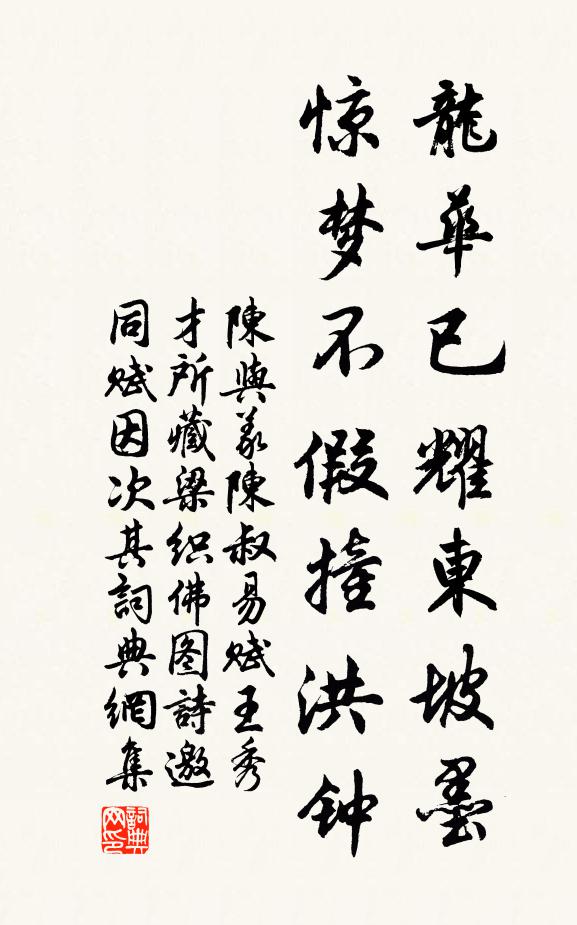 龍華已耀東坡墨
惊梦不假撞洪钟
陳與義陳叔易賦王秀
才所藏梁织佛图詩邀
同赋因次其詞典網集
詞典网印